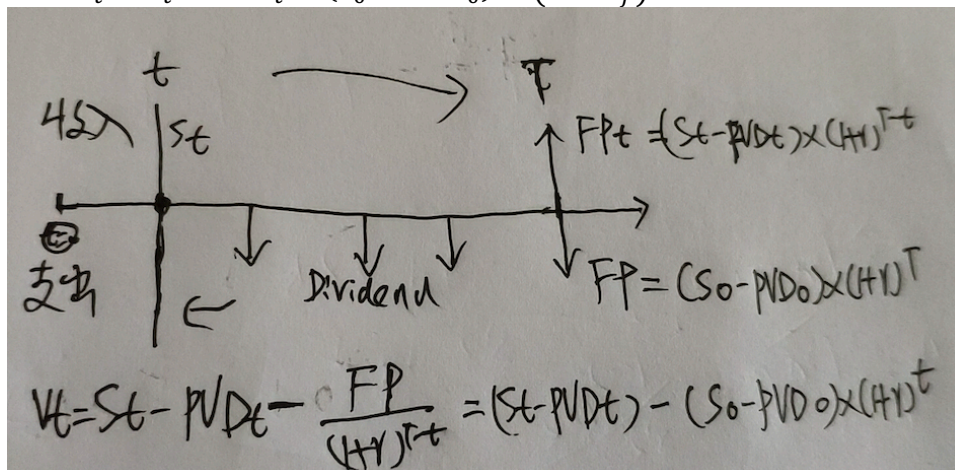 t T
收入 St FPt =(St-PVDt)×(1+r)^T-t
支出 Dividend FP=(S0-PVD0)×(1+r)^T
Vt=St-PVDt-FP/(1+r)^T-t=(St-PVDt)-(S0-PVD0)×(1+r)^t